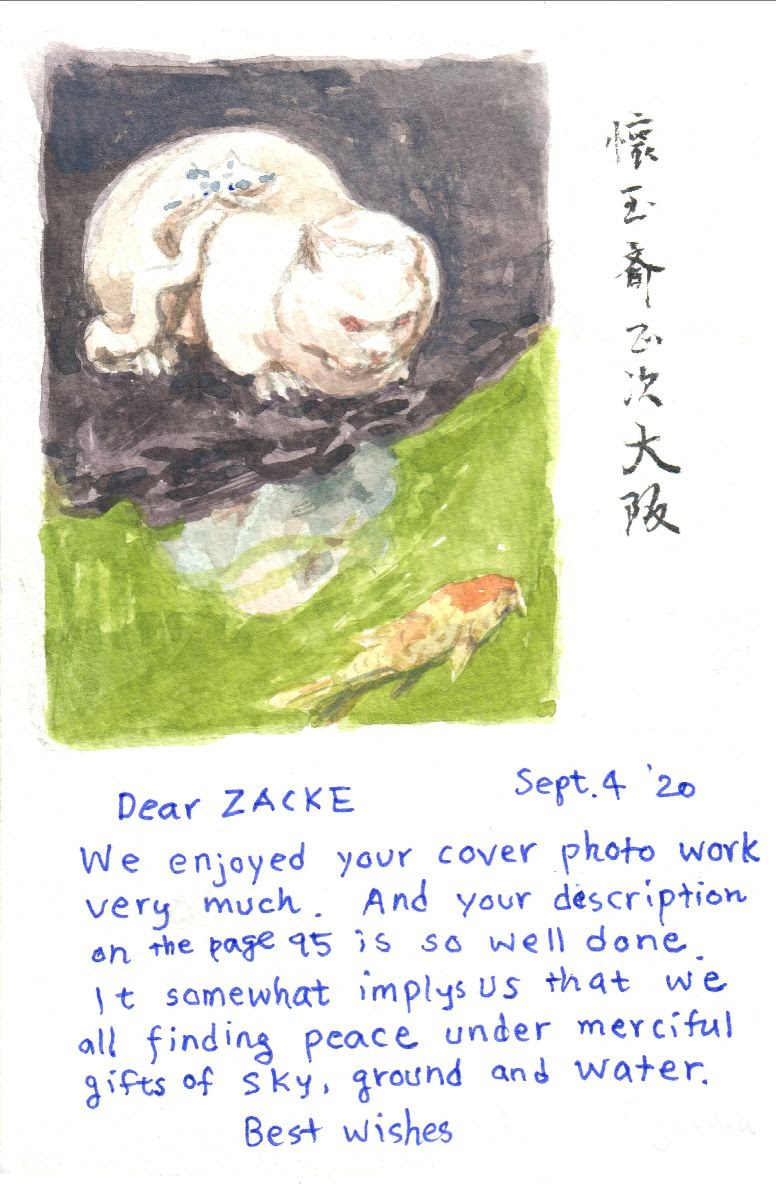 懐玉斎正次大阪
Dear ZACKE
Sept. 4 '20
We enjoyed your cover photo work
very much. And your description
on the page 95 is so well done.
It somewhat implys us that we
all finding peace under merciful
gifts of sky, ground and water.
Best wishes